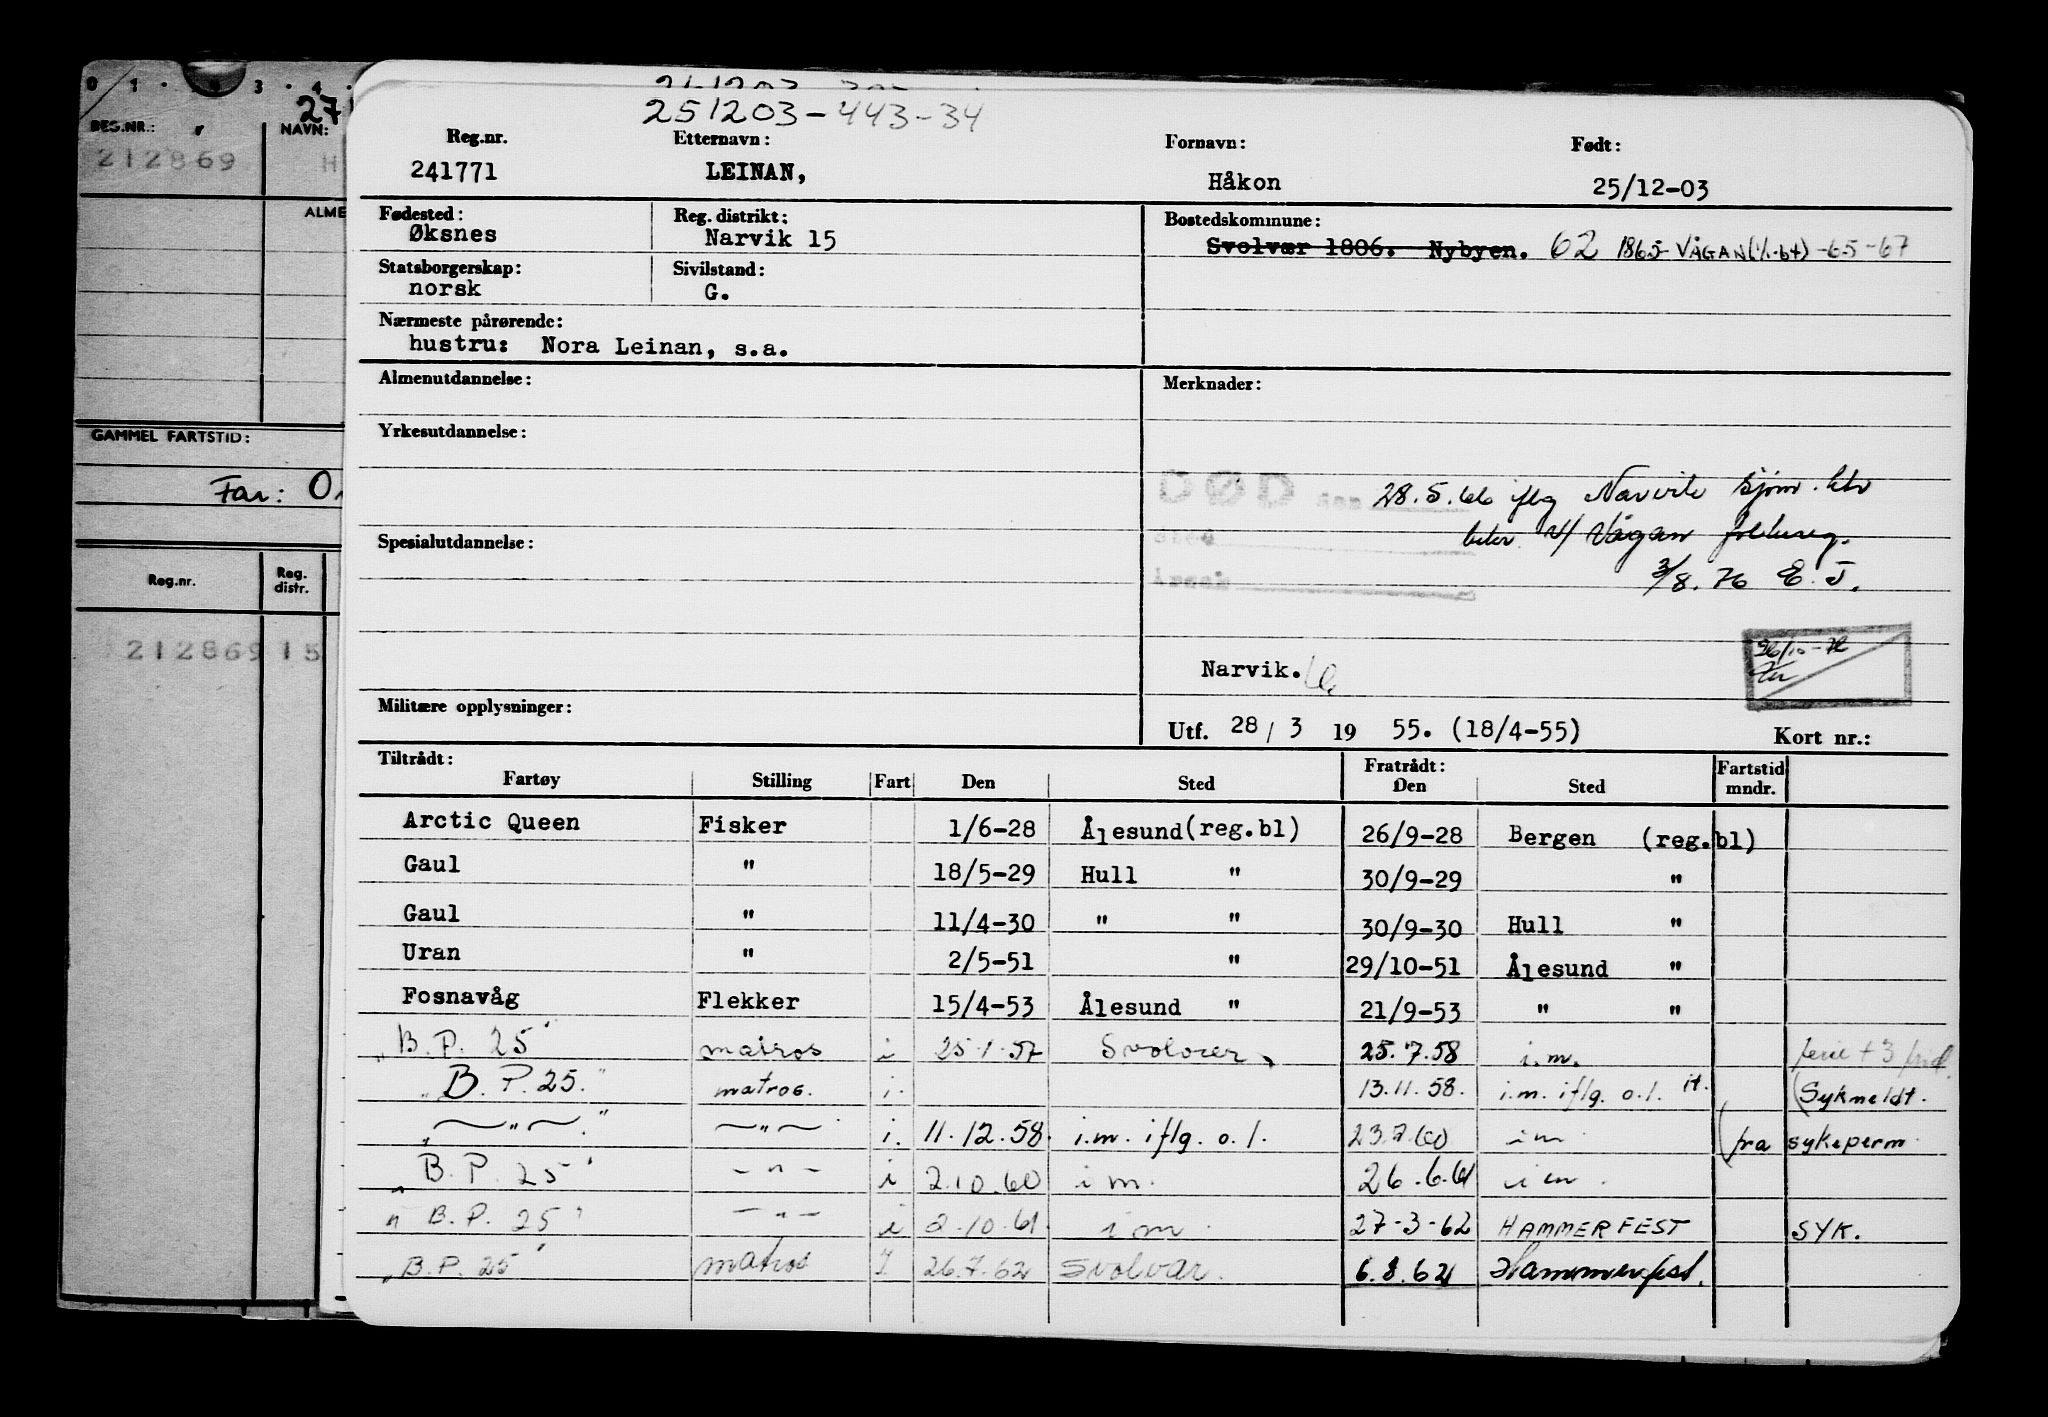 0 1 . 3 . 4 .
27
BES.NR.: NAVN:
212869 H
ALME
GAMMEL FARTSTID:
Far: O
Reg.nr. Reg. distr.
212869 15
251203-443-34
Reg.nr. Etternavn: Fornavn: Født:
241771 LEINAN, Håkon 25/12-03
Fødested: Reg. distrikt: Bostedskommune:
Øksnes Narvik 15 Svolvær 1806. Nybyen. 62 1865 VÅGAN (1/1-64) -65-67
Statsborgerskap: Sivilstand:
norsk G.
Nærmeste pårørende:
hustru: Nora Leinan, s.a.
Almenutdannelse: Merknader:
Yrkesutdannelse:
DØD 28.5.66 iflg Narvik sjøm. ktr
Sted bekr. v/ Vågan folkereg.
Årsak 3/8.76 E.J.
Spesialutdannelse:
Narvik.
26/10-76
Militære opplysninger:
Utf. 28 / 3 19 55. (18/4-55) Kort nr.:
Tiltrådt: Fratrådt: Fartstid
Fartøy Stilling Fart Den Sted Den Sted mndr.
Arctic Queen Fisker 1/6-28 Ålesund (reg.bl) 26/9-28 Bergen (reg.bl)
Gaul " 18/5-29 Hull " 30/9-29 "
Gaul " 11/4-30 " " 30/9-30 Hull "
Uran " 2/5-51 " 29/10-51 Ålesund "
Fosnavåg Flekker 15/4-53 Ålesund " 21/9-53 " "
"B.P. 25" matros i 25.1.57 Svolvær 25.7.58 i.m. ferie + 3 frid.
"B.P. 25." matros. i. 13.11.58. i.m. iflg. o.l. it. (Sykmeldt.
" — " — " — " — i. 11.12.58. i.m. iflg. o.l. 23.7.60 i m (fra sykeperm.
"B.P. 25" - " - i 2.10.60 i m. 26.6.61 i m.
"B.P. 25" - " - i 2.10.61. i m. 27-3-62 HAMMERFEST SYK.
"B.P. 25" matros I 26.7.62 Svolvær. 6.8.62 Hammerfest.